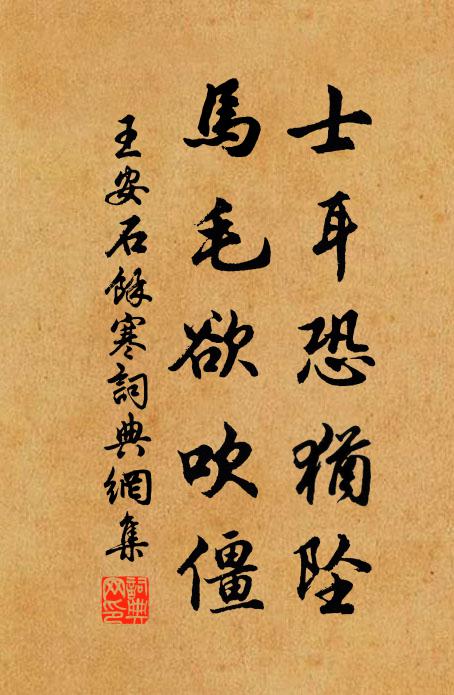 士耳恐猶墜
馬毛欲吹僵
王安石餘寒詞典網集
詞典網印